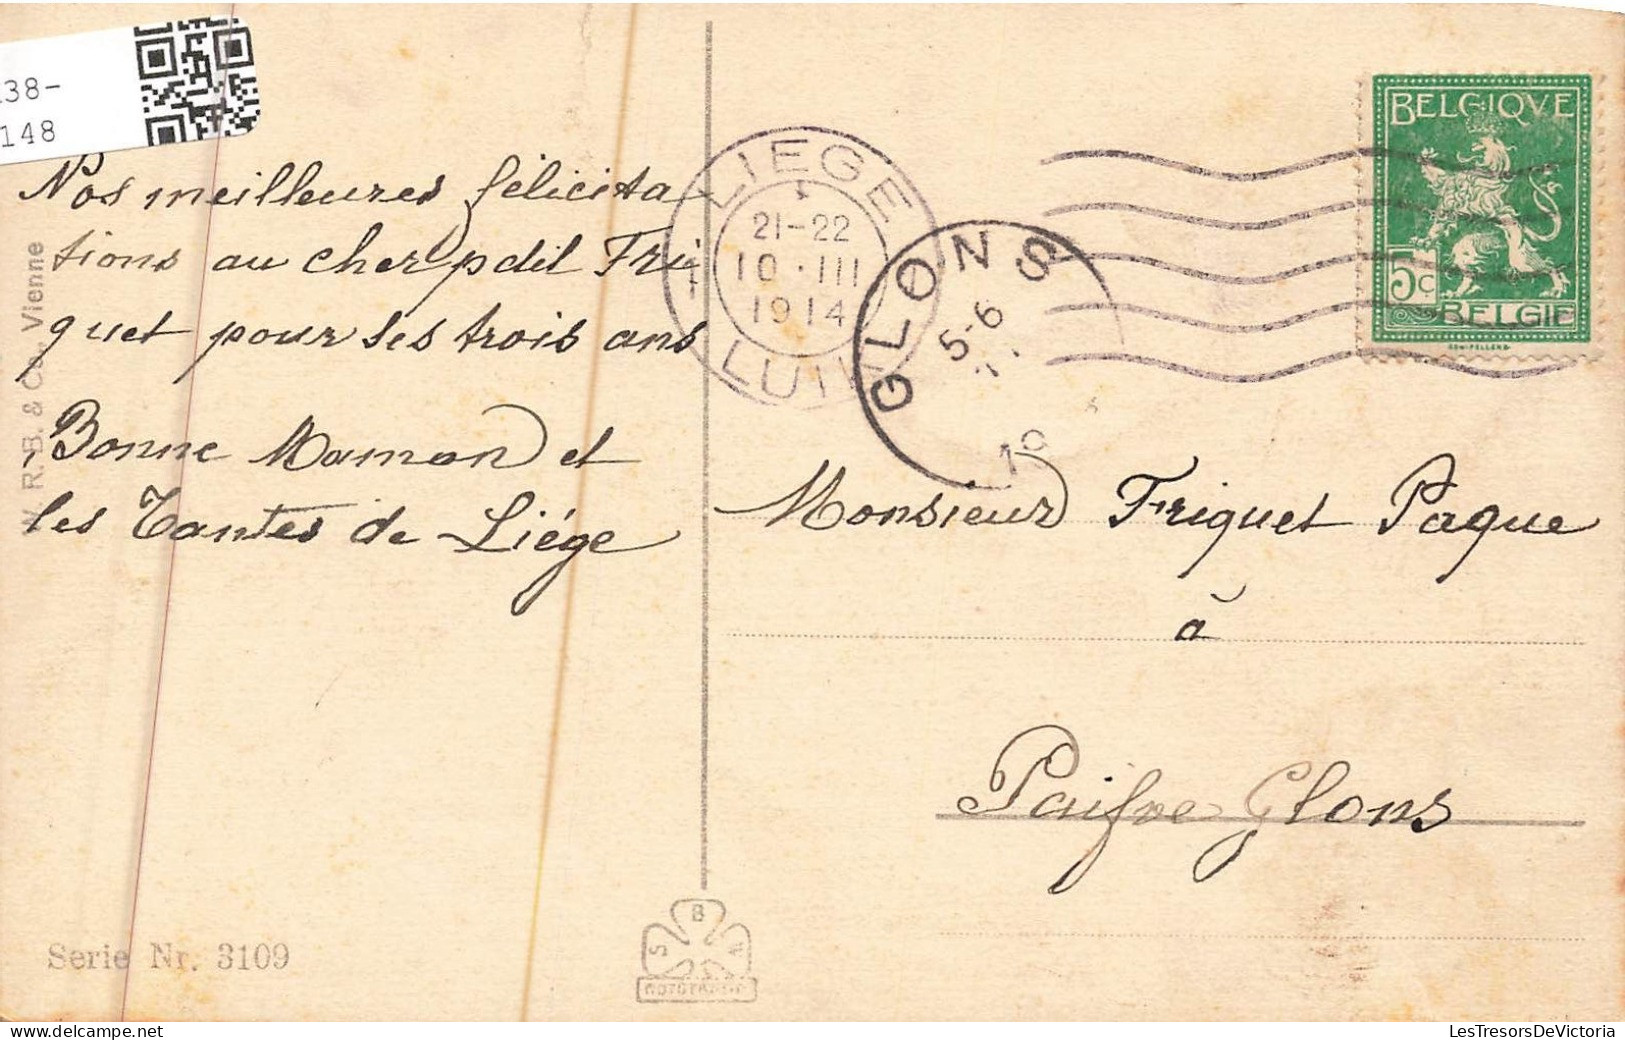 138-
148
Nos meilleures félicita
tions au cher pdil Fri
quet pour ses trois ans
Bonne Maman et
les Tantes de Liége
W. R. B. & Co., Vienne
Serie Nr. 3109
B
S W
LIEGE
21-22
10·III
1914
1
LUIK
GLONS
5-6
19
BELGIQVE
5c
BELGIE
Monsieur Friquet Paque
à
Paifve Glons
LesTresorsDeVictoria